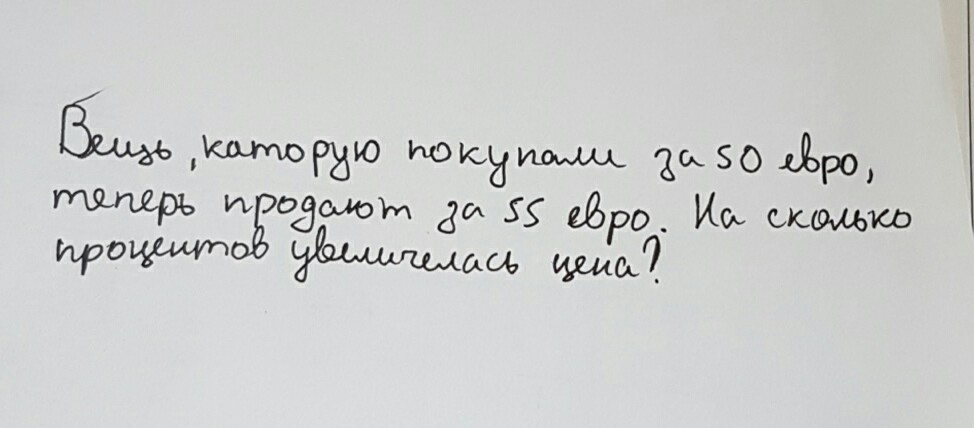 Вещь, каторую покупали за 50 евро,
теперь продают за 55 евро. На сколько
процентов увеличелась цена?